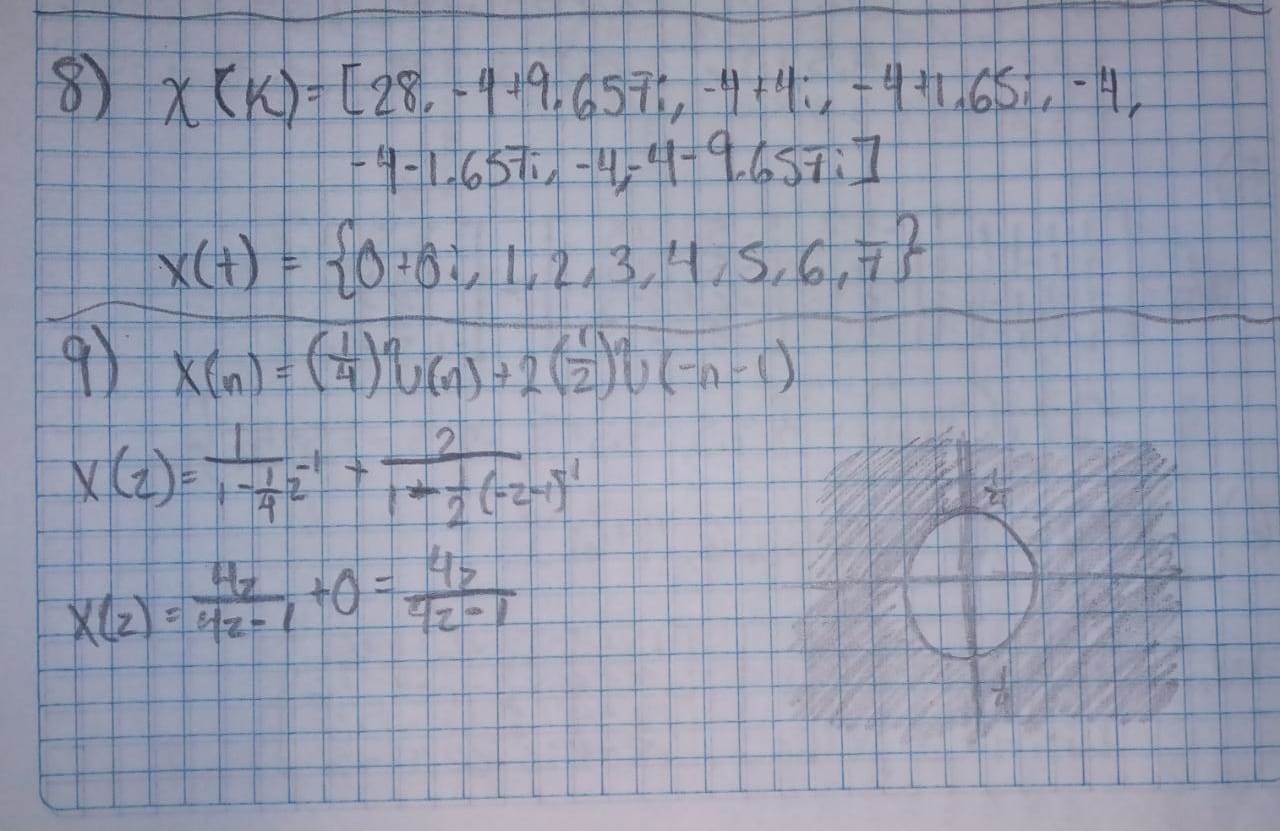 8) X(K)=[28, -4+9.657i, -4+4i, -4+1.65i, -4,
-4-1.657i, -4,-4-9.657i]
x(t) = {0+0i, 1, 2, 3, 4, 5, 6, 7}
9) X(n)=(1/4)^n u(n)+2(1/2)^n u(-n-1)
X(z)= 1/(1-1/4 z^-1) + 2/(1-1/2 (-z-1)^-1)
X(z)= 4z/(4z-1) +0= 4z/(4z-1)